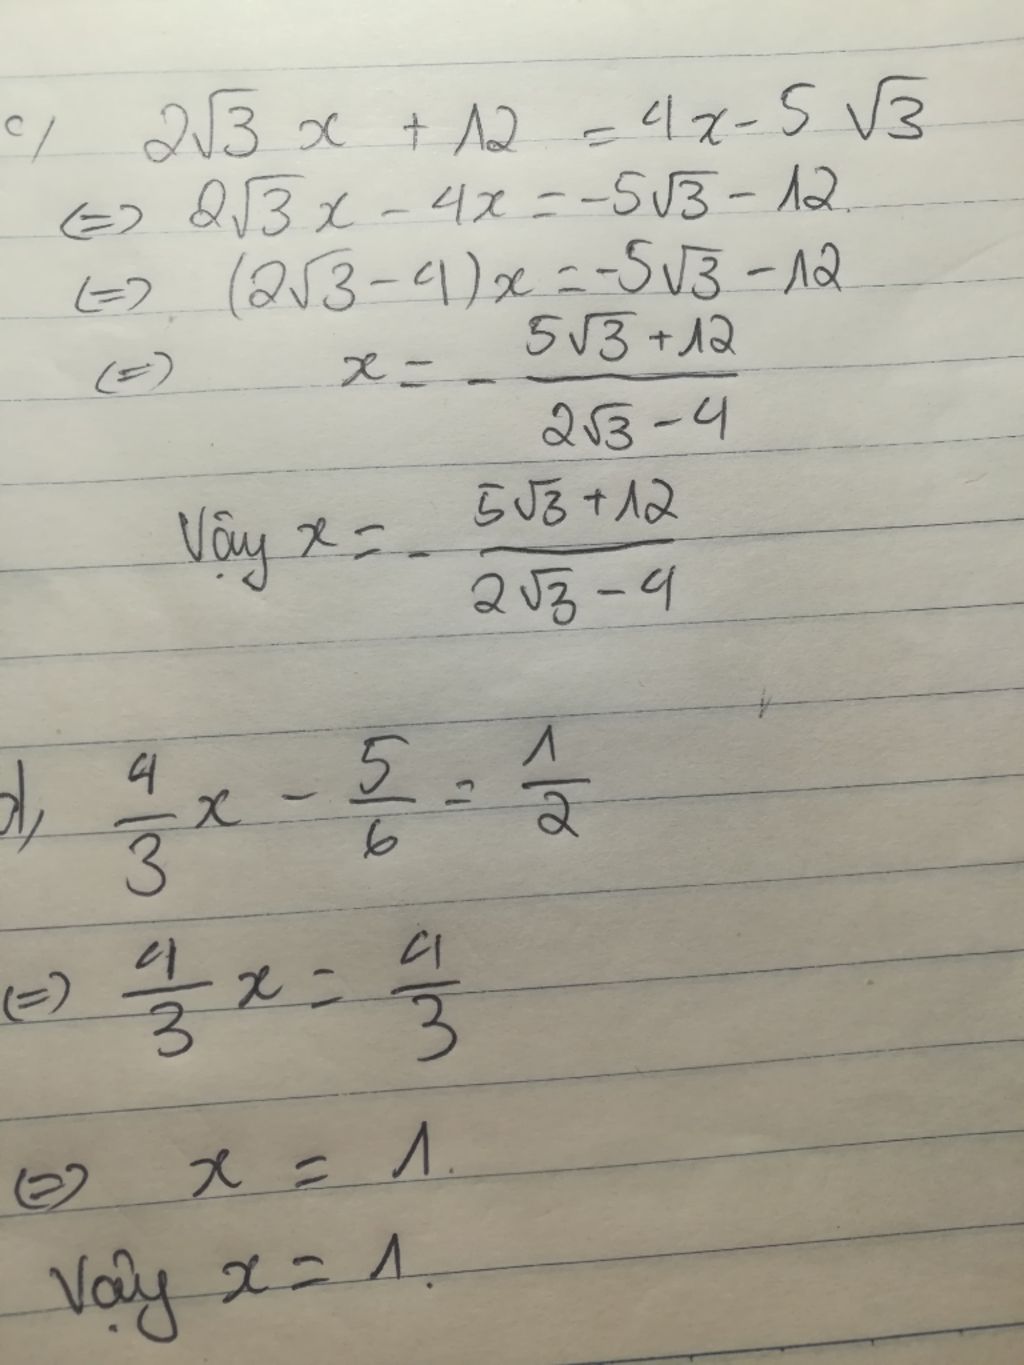 c/ 2√3 x + 12 = 4x - 5 √3
(=) 2√3 x - 4x = -5√3 - 12.
(=) (2√3 - 4) x = -5√3 - 12
(=) x = - (5√3 + 12)/(2√3 - 4)
Vậy x = - (5√3 + 12)/(2√3 - 4)
d, 4/3 x - 5/6 = 1/2
(=) 4/3 x = 4/3
(=) x = 1.
Vậy x = 1.